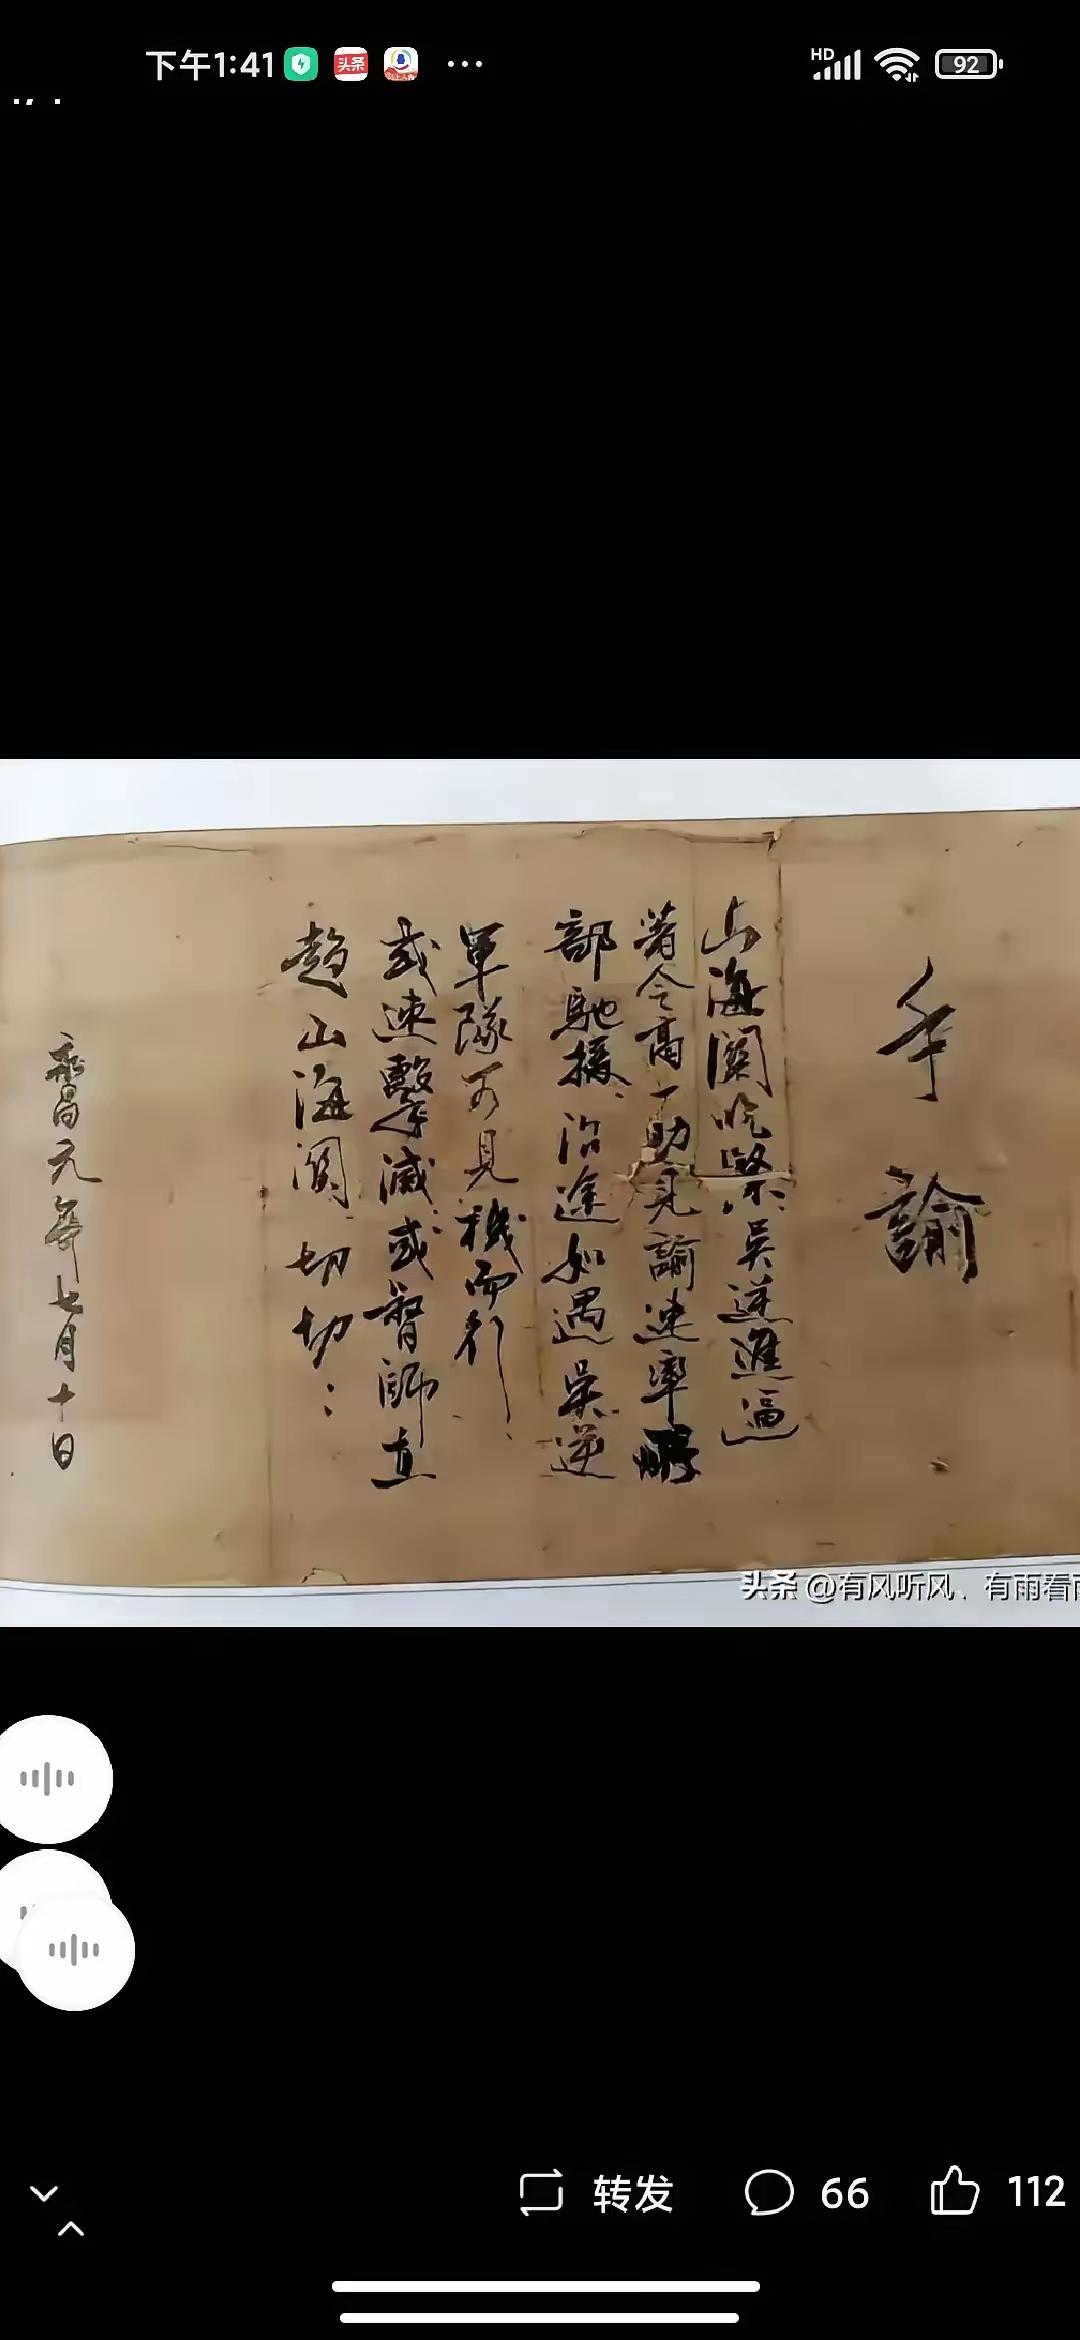 下午1:41 头条 ... HD 92
手諭
山海関吃緊吳逆進逼
著令高一功見諭速率
部馳援沿途如遇吳逆
軍隊可見機而行
或速擊滅或督師直
趨山海関切切
永昌元年七月十日
头条 @有风听风、有雨看雨
转发 66 112